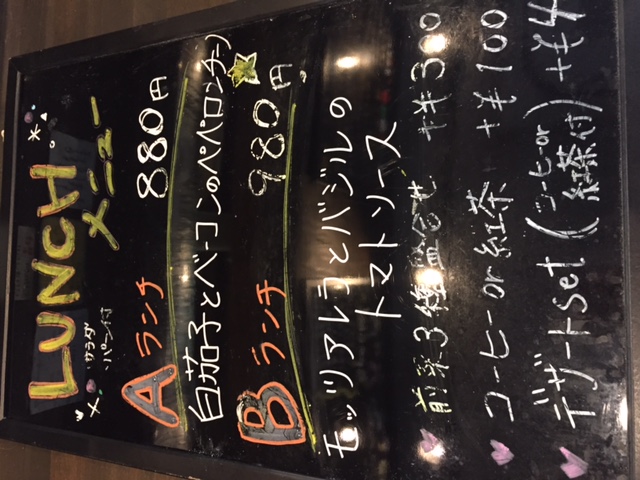 LUNCH
メニュー
サラダ
パン付
Aランチ 880円
白茄子とベーコンのペペロンチーノ
Bランチ 980円
モッツアレラとバジルの
トマトソース
前菜3種盛合せ +¥300
コーヒーor紅茶 +¥100
デザートset (コーヒーor紅茶付) +¥4